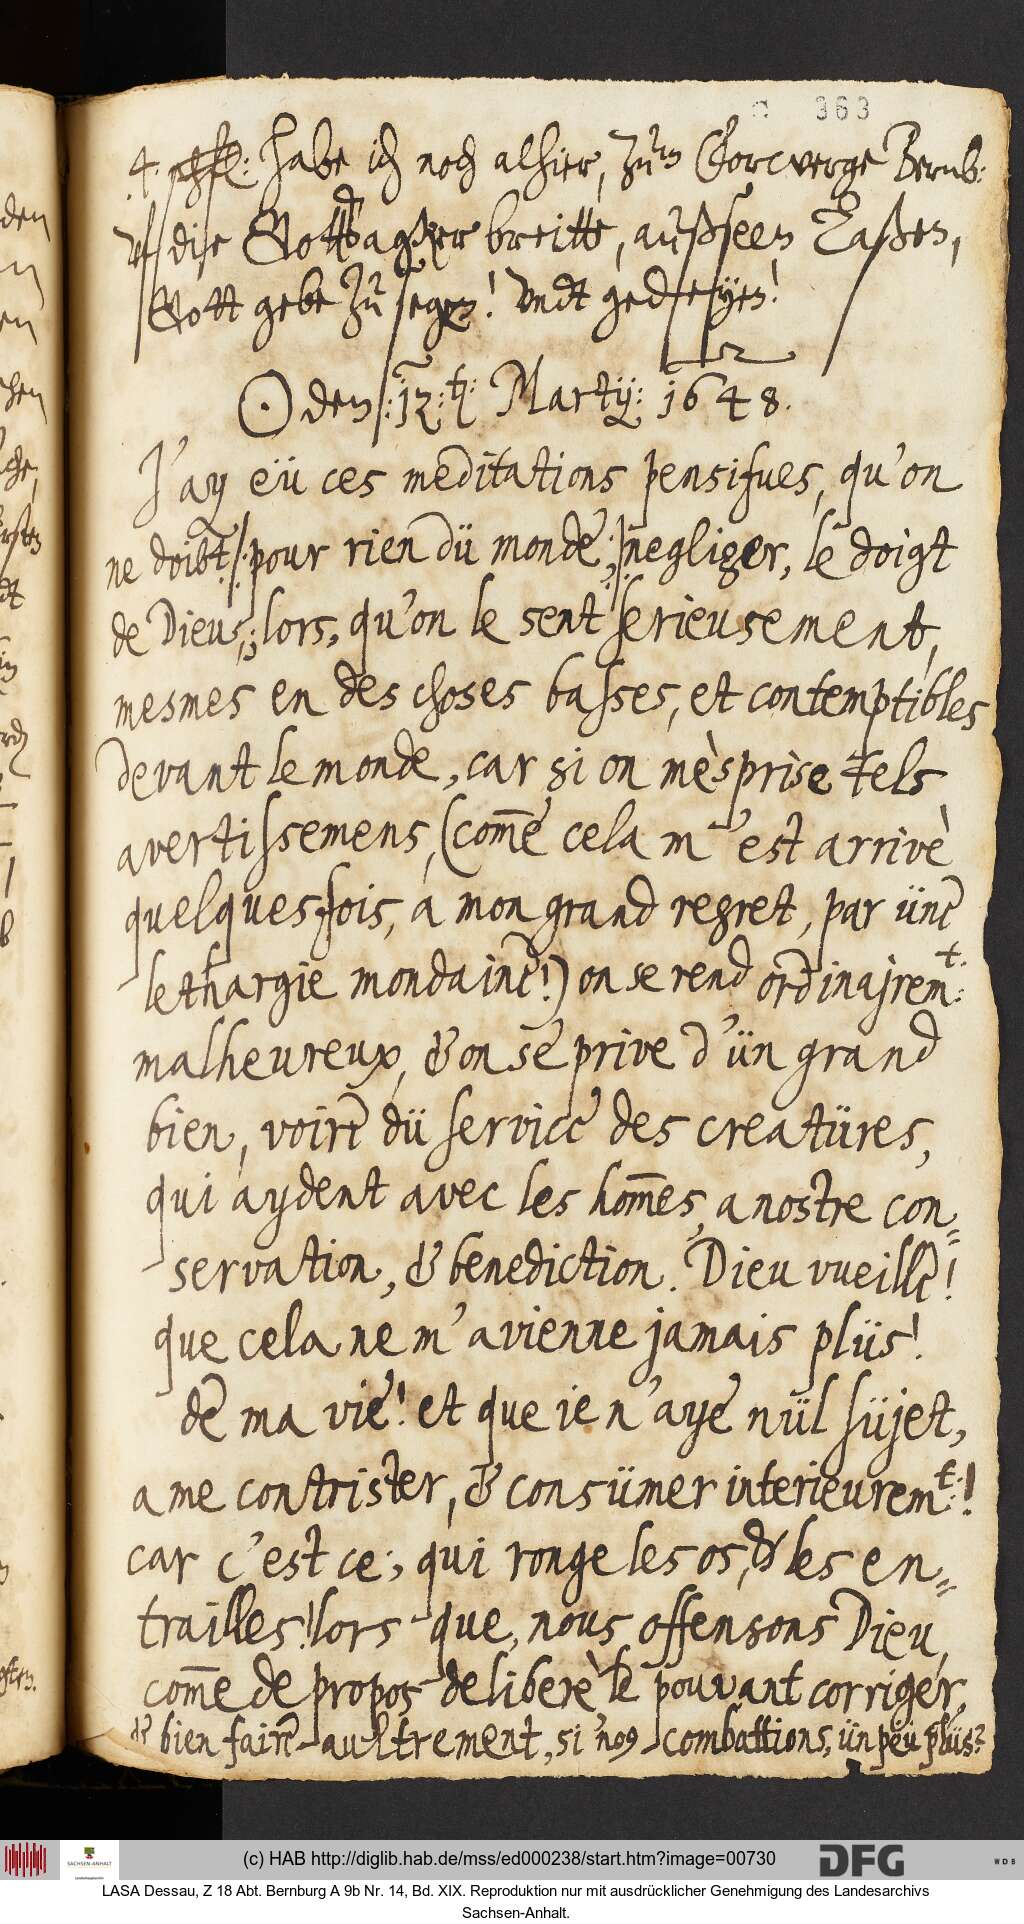 363
4. schfl: habe ich noch alhier, zum Vorwerge Bernb:
uf dise Gottsagker breitte, außseen laßen,
Gott gebe zu segen! Undt gedeyen!
☉ den: 12.t: Martij: 1648.
J'ay eü ces meditations pensifues, qu'on
ne doibt /: pour rien dü monde, :/ negliger, le doigt
de Dieu, lors, qu'on le sent serieusement,
mesmes en des choses basses, et contemptibles
devant le monde, car si on mèsprise tels
avertissemens, (com̄e cela m'est arrivè
quelquesfois, a mon grand regret, par üne
lethargie mondaine!) on se rend ordinajrem:t
malheureux, & on se prive d'ün grand
bien, voire dü service des creatüres,
qui aydent avec les hom̄es, a nostre con=
servation, & benediction. Dieu vueille!
que cela ne m'avienne jamais plüs!
de ma vie! et que ie n'aye nül süjet,
a me contrister, & consümer interieurem:t!
car c'est ce, qui ronge les os, & les en=
trailles! lors que, nous offensons Dieu,
com̄e de propos deliberè, le pouvant corriger,
& bien faire aultrement, si no9 combattions, ün peu plüs?
(c) HAB http://diglib.hab.de/mss/ed000238/start.htm?image=00730
SACHSEN-ANHALT
DFG
WDB
LASA Dessau, Z 18 Abt. Bernburg A 9b Nr. 14, Bd. XIX. Reproduktion nur mit ausdrücklicher Genehmigung des Landesarchivs
Sachsen-Anhalt.